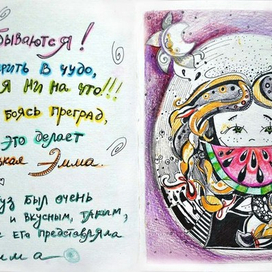 бываются!
рить в чудо,
я ни на что!!!
боясь преград,
это делает
кая Эмма.
уз был очень
и вкусным, таким,
её представляла
мма